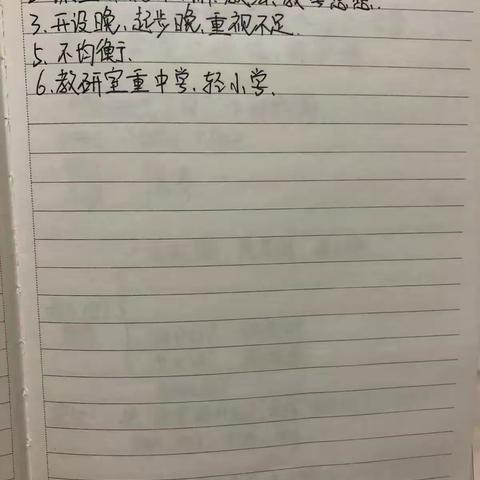 3.开设晚,起步晚,重视不足.
5.不均衡.
6.教研室重中学.轻小学.